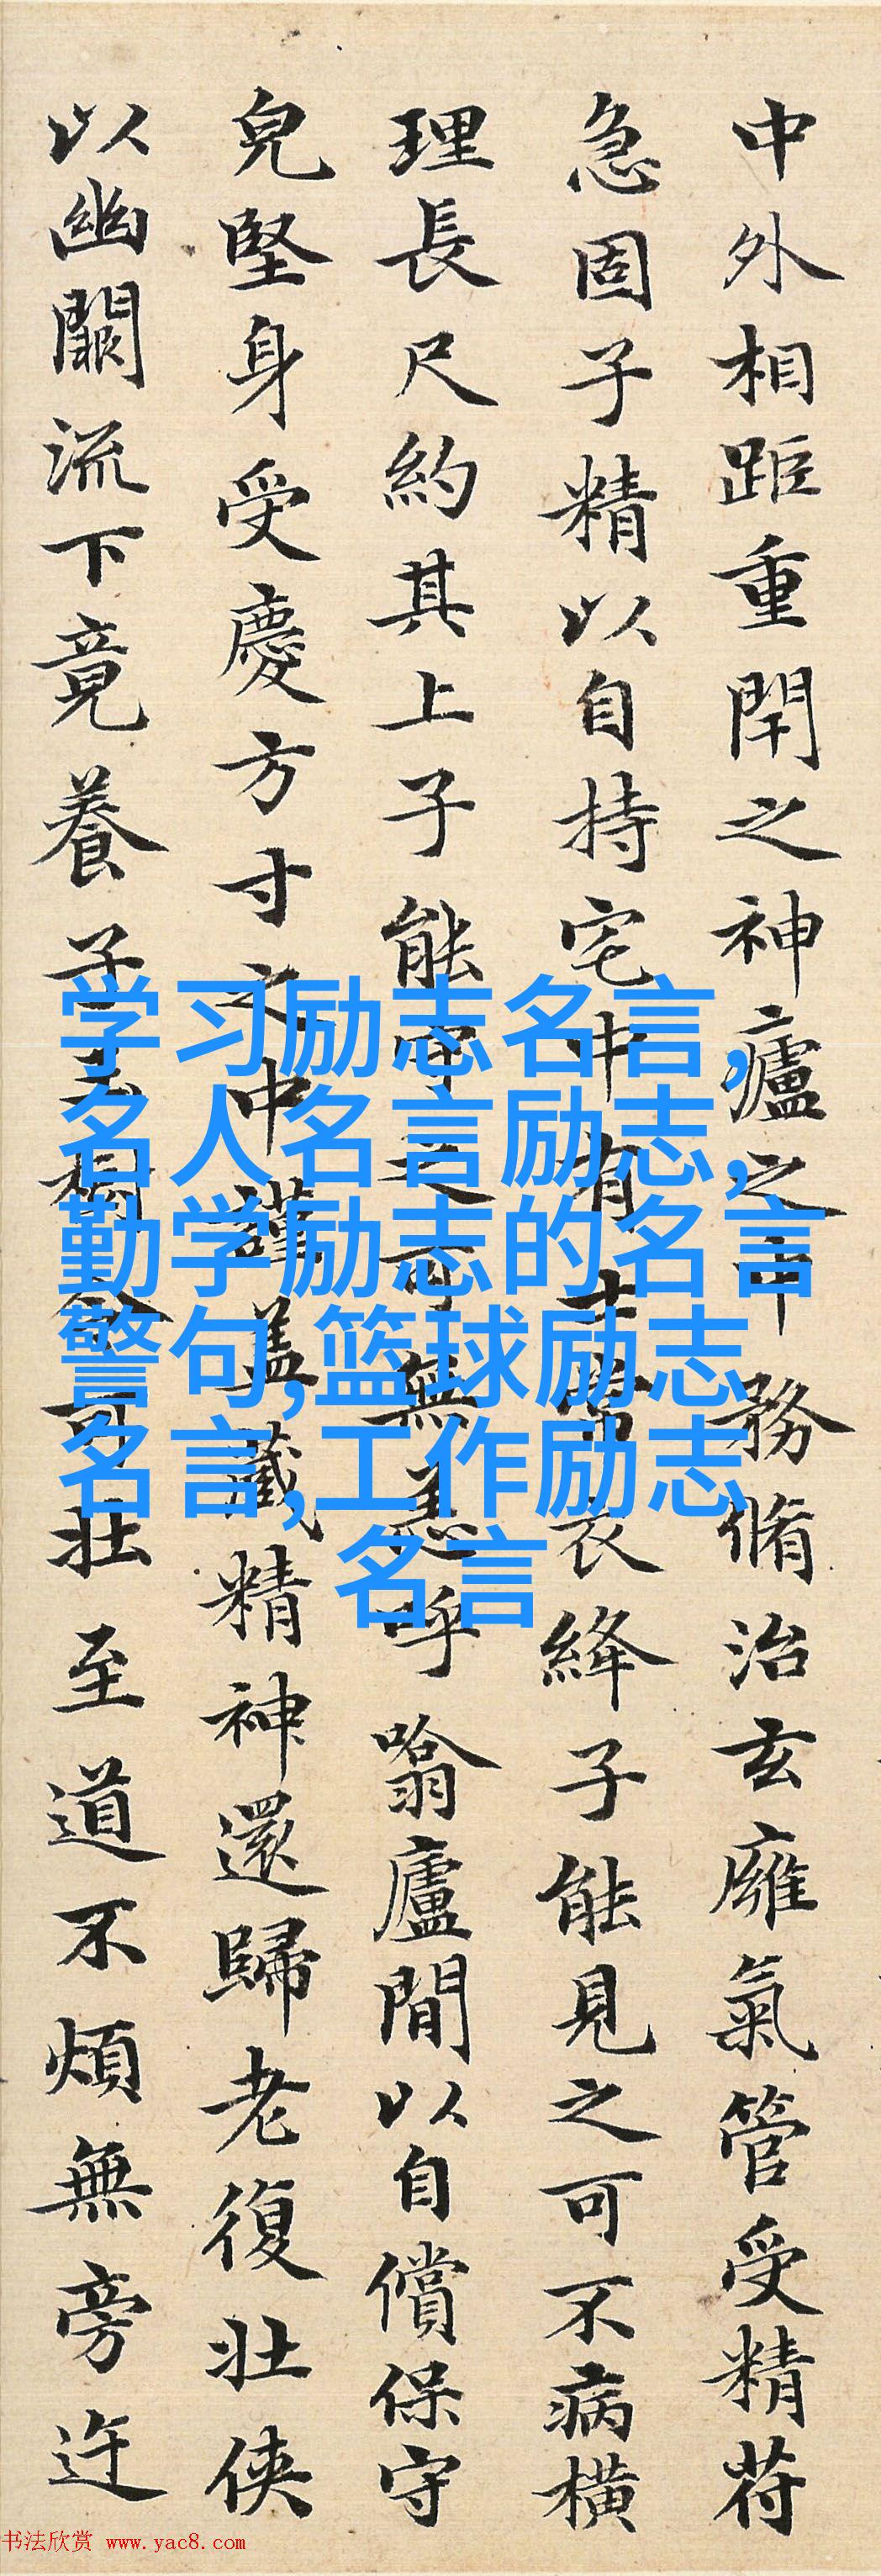 中外相距重閇之神廬之中務脩治玄廱氣管受精苻
急固子精以自持宅中有士常衣絳子能見之可不病橫
理長尺約其上子能守之可無恙呼噏廬間以自償保守
皃堅身受慶方寸之中謹蓋藏精神還歸老復壯俠
以幽闕流下竟養子玉樹令可壯至道不煩無旁迕
学习励志名言,
名人名言励志,
勤学励志的名言
警句,篮球励志
名言,工作励志
名言
书法欣赏 www.yac8.com